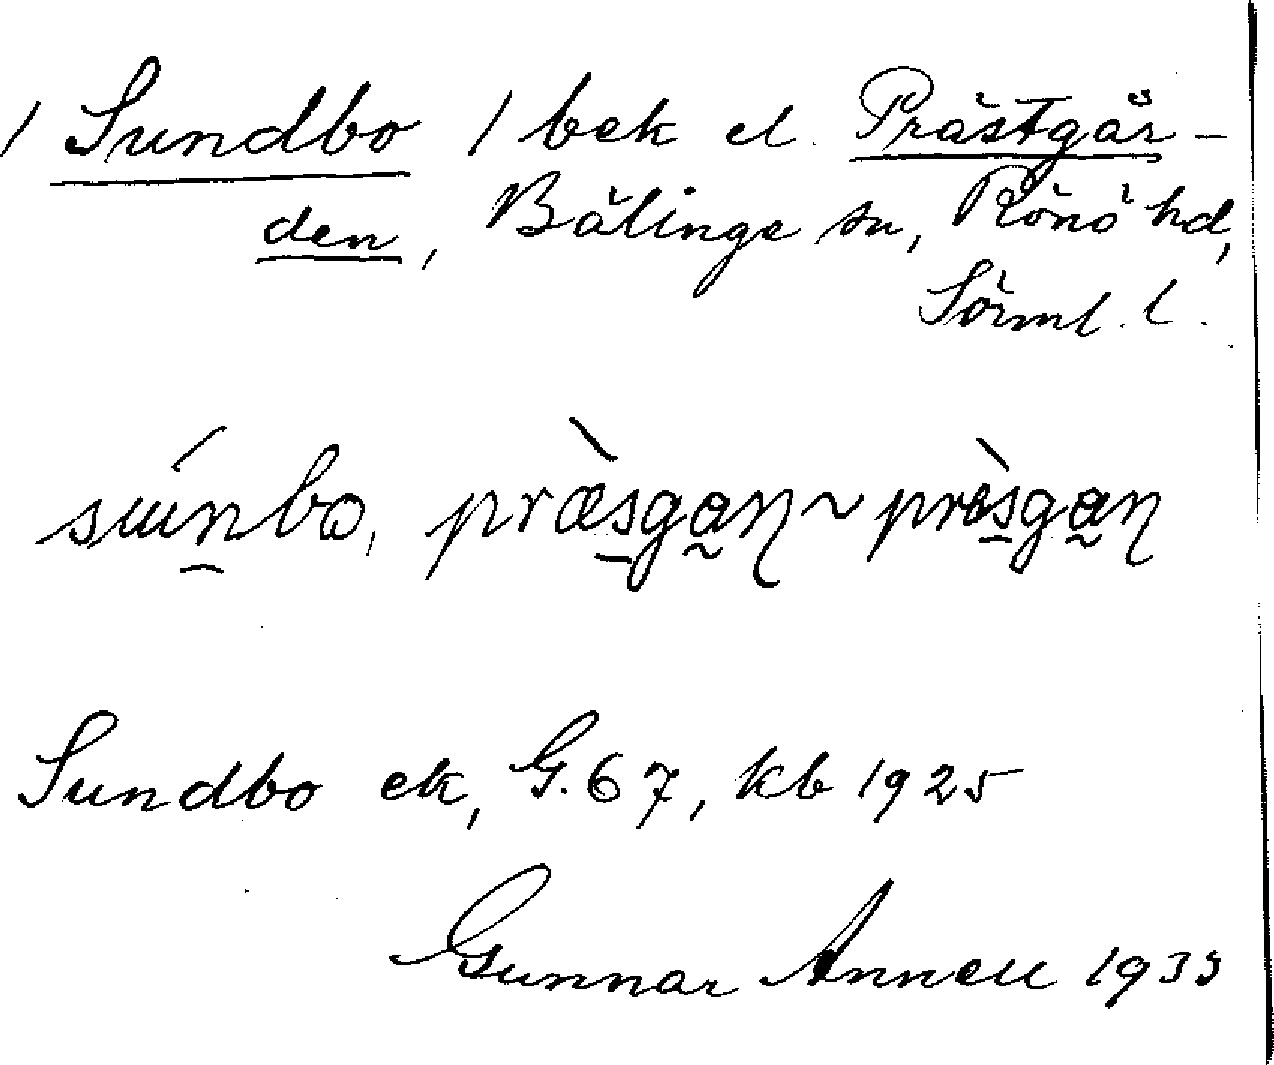 / Sundbo / bek el. Prästgår-
den, Bälinge sn, Rönö hd,
Sörml. l.
súnbo, præ̀sgan ~ près̀gan
Sundbo ek, G. 67, kb 1925
Gunnar Annell 1933